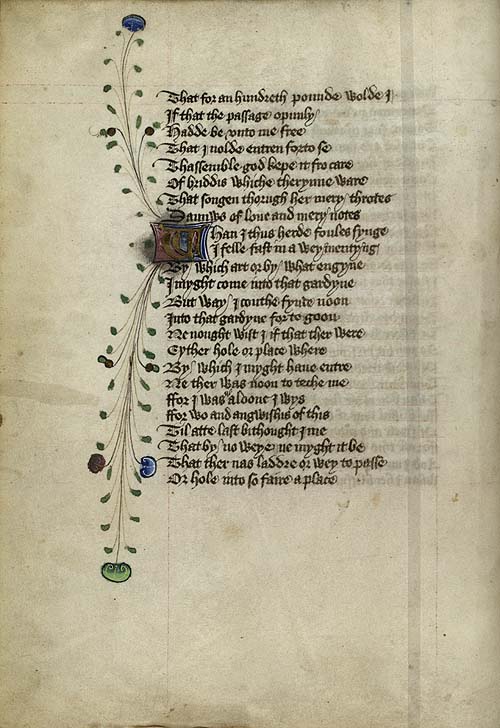 That for an hundreth pounde wolde I
If that the passage opunly
Hadde be vnto me free
That I nolde entren for to se
Thassemble god kepe it fro care
Of briddis whiche therynne ware
That songen thorugh her mery throtes
Daunws of loue and mery notes
Whan I thus herde foules synge
I felle fast in a weymentyng
By which art or by what engyne
I myght come into that gardyne
But way I couthe fynde noon
Into that gardyne for to goon
Ne nought wist I if that ther were
Eyther hole or place where
By which I myght haue entre
Ne ther was noon to teche me
ffor I was aldone I wys
ffor wo and angwishis of this
Til atte last bithought I me
That by no weye ne myght it be
That ther nas laddre or wey to passe
Or hole into so faire a place